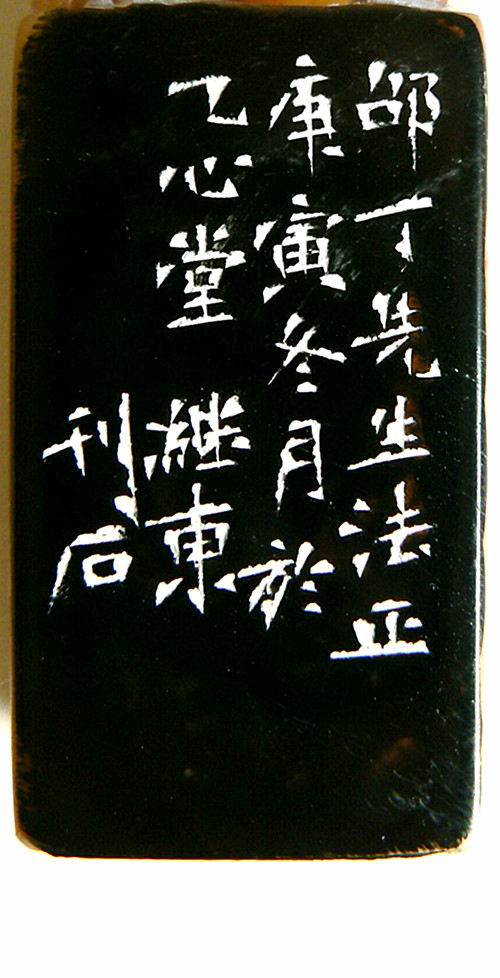 邵丁先生法正
庚寅冬月於
乙心堂 継東
刊石